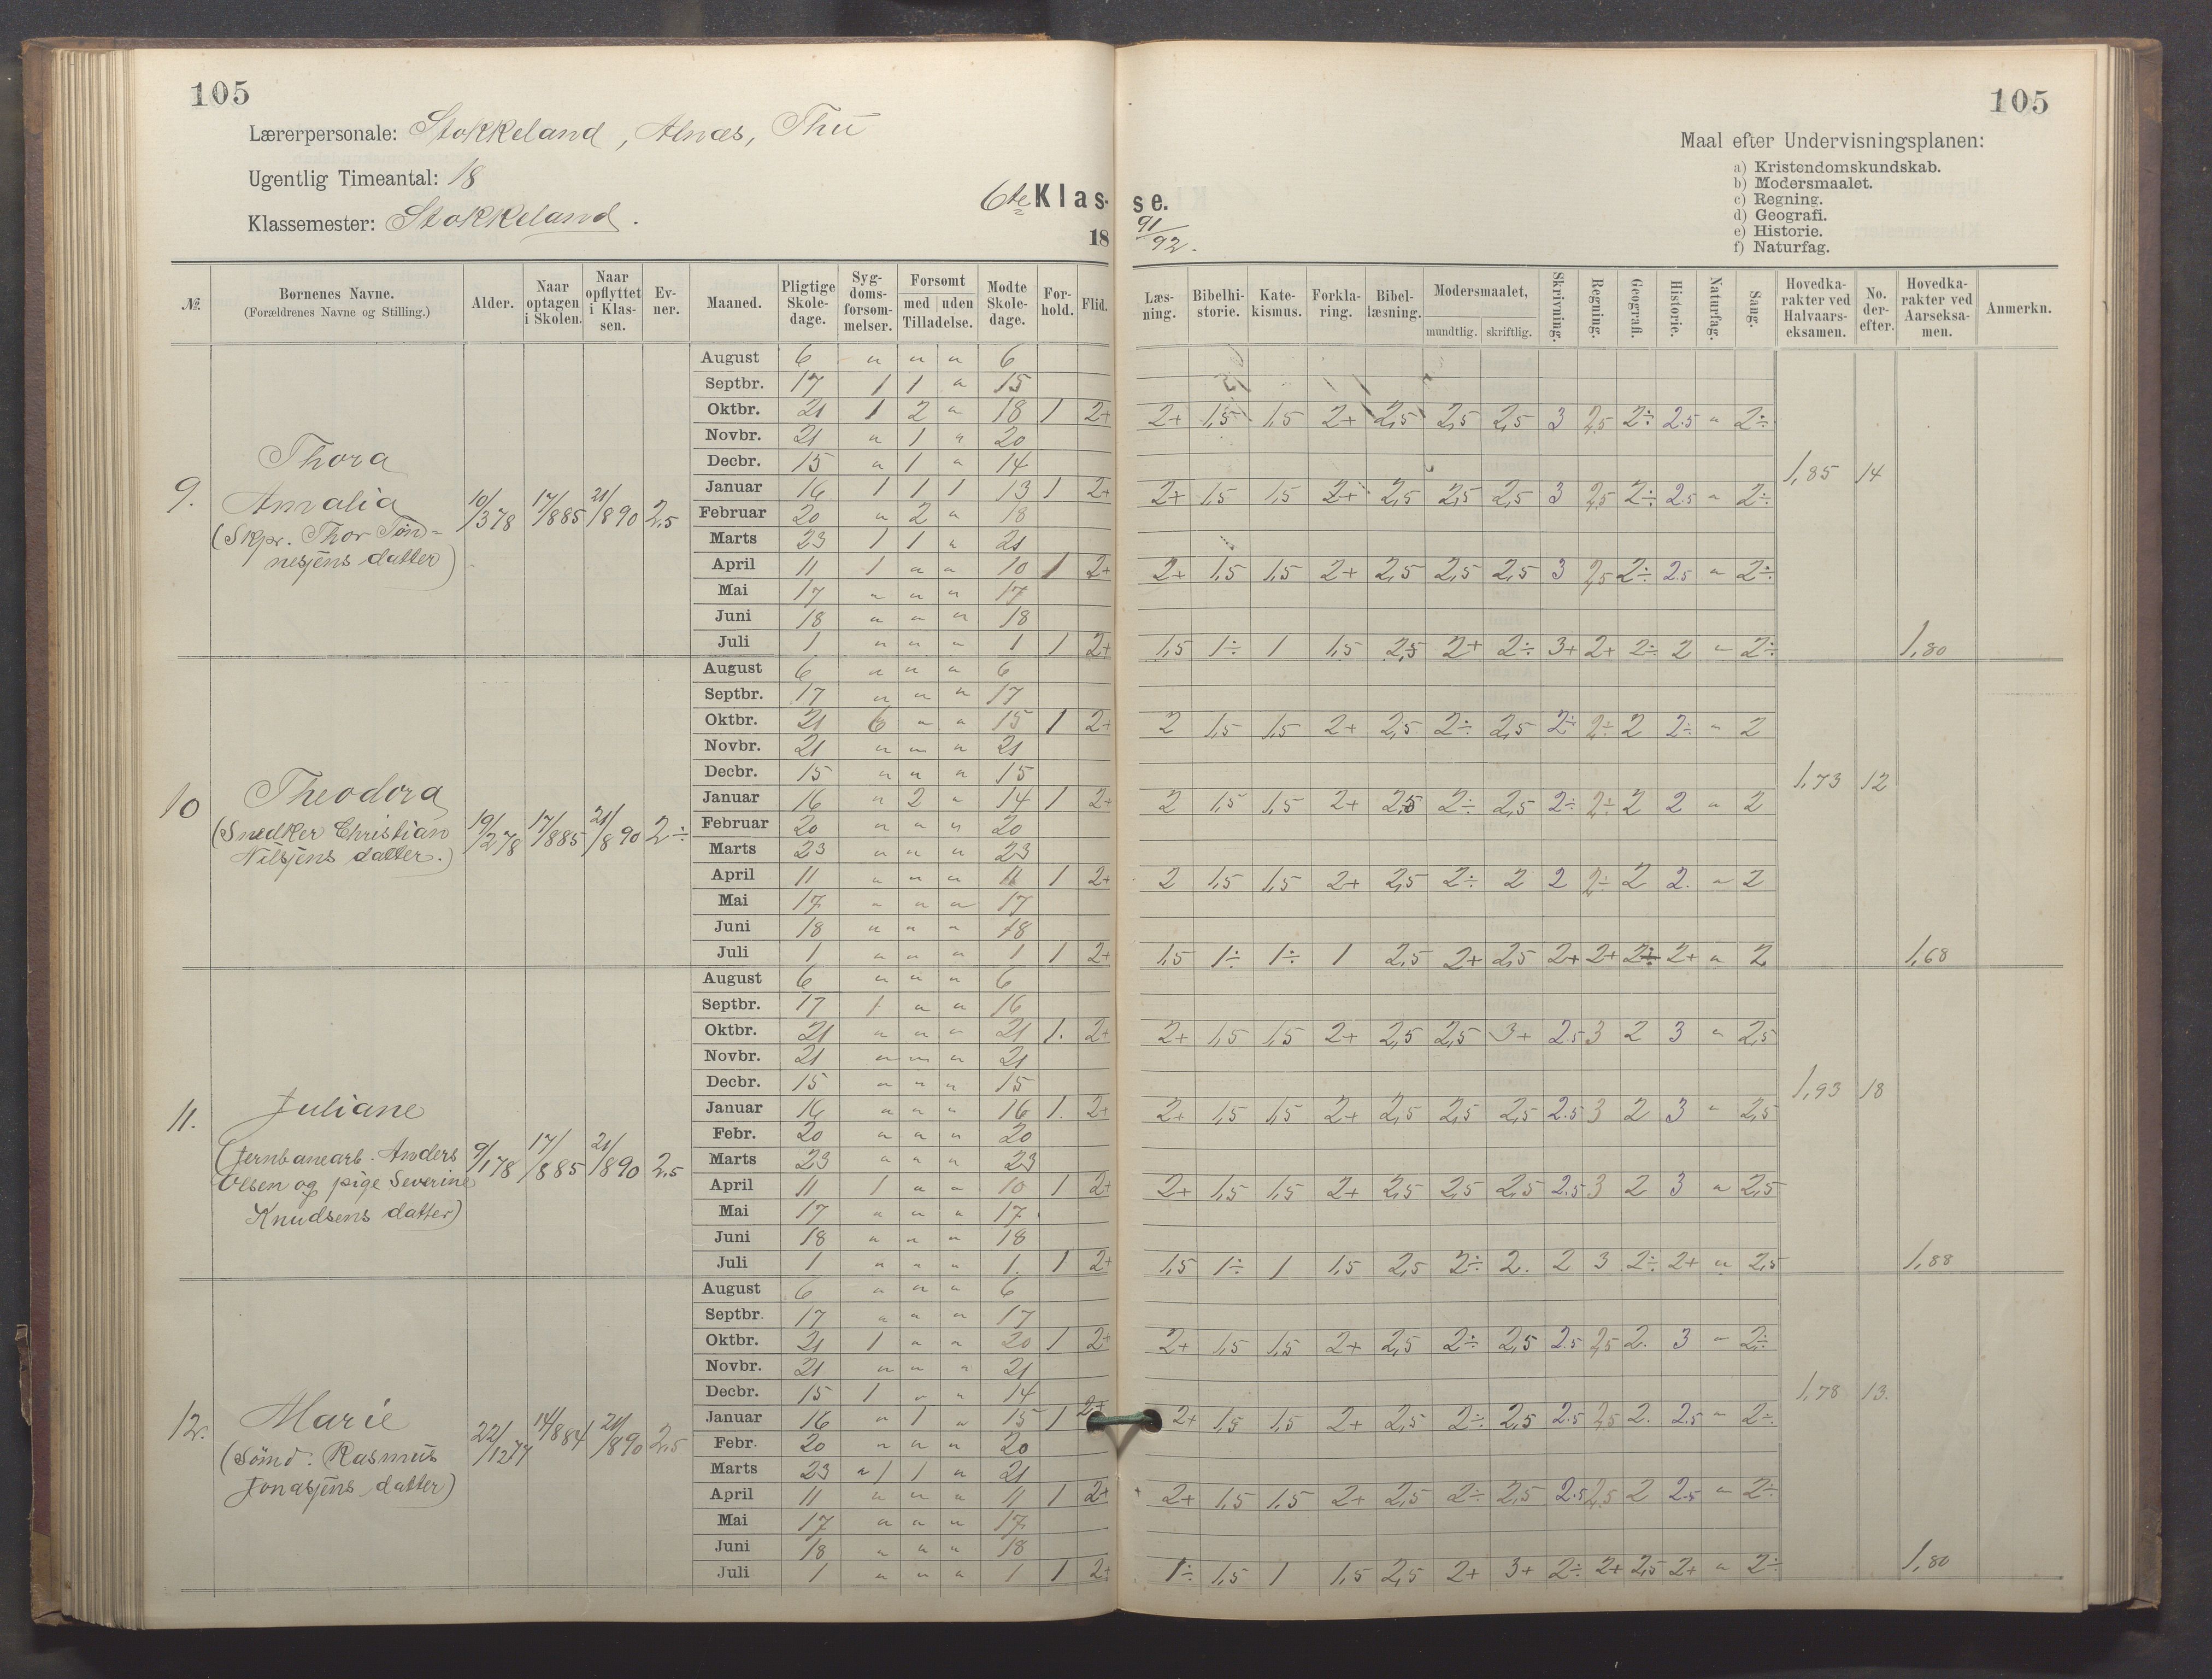 105
105
Lærerpersonale: Stokkeland, Alnæs, Thu
Ugentlig Timeantal: 18
Klassemester: Stokkeland.
6te Klas- se.
18 91/92.
Maal efter Undervisningsplanen:
a) Kristendomskundskab.
b) Modersmaalet.
c) Regning.
d) Geografi.
e) Historie.
f) Naturfag.
№ Børnenes Navne. (Forældrenes Navne og Stilling.) Alder. Naar optagen i Skolen. Naar opflyttet i Klassen. Evner. Maaned. Pligtige Skoledage. Sygdomsforsømmelser. Forsømt med uden Tilladelse. Mødte Skoledage. Forhold. Flid. Læsning. Bibelhistorie. Katekismus. Forklaring. Bibellæsning. Modersmaalet, mundtlig. skriftlig. Skrivning. Regning. Geografi. Historie. Naturfag. Sang. Hovedkarakter ved Halvaarseksamen. No. derefter. Hovedkarakter ved Aarseksamen. Anmerkn.
9. Thora Amalia
(Skpr. Thor Tøn-
nesens datter)
10/3 78 17/8 85 21/8 90 2,5
August 6 " " " 6
Septbr. 17 1 1 " 15
Oktbr. 21 1 2 " 18 1 2+ 2+ 1,5 1,5 2+ 2,5 2,5 2,5 3 2,5 2÷ 2.5 " 2÷
Novbr. 21 " 1 " 20
Decbr. 15 " 1 " 14
1,85 14
Januar 16 1 1 1 13 1 2+ 2+ 1,5 1,5 2+ 2,5 2,5 2,5 3 2,5 2÷ 2.5 " 2÷
Februar 20 " 2 " 18
Marts 23 1 1 " 21
April 11 1 " " 10 1 2+ 2+ 1,5 1,5 2+ 2,5 2,5 2,5 3 2,5 2÷ 2.5 " 2÷
Mai 17 " " " 17
Juni 18 " " " 18
Juli 1 " " " 1 1 2+ 1,5 1÷ 1 1,5 2,5 2+ 2÷ 3+ 2+ 2÷ 2 " 2÷ 1,80
10 Theodora
(Snedker Christian
Nilsens datter.)
19/2 78 17/8 85 21/8 90 2÷
August 6 " " " 6
Septbr. 17 " " " 17
Oktbr. 21 6 " " 15 1 2+ 2 1,5 1,5 2+ 2,5 2÷ 2,5 2÷ 2÷ 2 2÷ " 2
Novbr. 21 " " " 21
Decbr. 15 " " " 15
1,73 12
Januar 16 " 2 " 14 1 2+ 2 1,5 1,5 2+ 2,5 2÷ 2,5 2÷ 2÷ 2 2 " 2
Februar 20 " " " 20
Marts 23 " " " 23
April 11 " " " 11 1 2+ 2 1,5 1,5 2+ 2,5 2÷ 2 2 2÷ 2 2. " 2
Mai 17 " " " 17
Juni 18 " " " 18
Juli 1 " " " 1 1 2+ 1,5 1÷ 1÷ 1 2,5 2+ 2,5 2+ 2+ 2÷ 2+ " 2 1,68
11. Juliane
(Jernbanearb. Anders
Olsen og pige Severine
Knudsens datter)
9/1 78 17/8 85 21/8 90 2,5
August 6 " " " 6
Septbr. 17 1 " " 16
Oktbr. 21 " " " 21 1. 2+ 2+ 1,5 1,5 2+ 2,5 2,5 3+ 2.5 3 2 3 " 2,5
Novbr. 21 " " " 21
Decbr. 15 " " " 15
1,93 18
Januar 16 " " " 16 1. 2+ 2+ 1,5 1,5 2+ 2,5 2,5 2,5 2.5 3 2 3 " 2,5
Febr. 20 " " " 20
Marts 23 " " " 23
April 11 1 " " 10 1 2+ 2+ 1,5 1,5 2+ 2,5 2,5 2,5 2.5 3 2 3 " 2,5
Mai 17 " " " 17
Juni 18 " " " 18
Juli 1 " " " 1. 1 2+ 1,5 1÷ 1 1,5 2,5 2÷ 2. 2 3 2÷ 2+ " 2,5 1,88
12. Marie
(Sømd. Rasmus
Jonasens datter)
22/12 77 14/8 84 21/8 90 2,5
August 6 " " " 6
Septbr. 17 " " " 17
Oktbr. 21 1 " " 20 1 2+ 2+ 1,5 1,5 2+ 2,5 2÷ 2,5 2.5 2,5 2. 3 " 2÷
Novbr. 21 " " " 21
Decbr. 15 1 " " 14
1,78 13.
Januar 16 " 1 " 15 1 2+ 2+ 1,5 1,5 2+ 2,5 2÷ 2,5 2.5 2,5 2. 2.5 " 2÷
Febr. 20 " " " 20
Marts 23 " 1 1 " 21
April 11 " " " 11 1 2+ 2+ 1,5 1,5 2+ 2,5 2÷ 2,5 2.5 2,5 2 2.5 " 2÷
Mai 17 " " " 17
Juni 18 " " " 18
Juli 1 " " " 1 1 2+ 1÷ 1,5 1 1,5 2,5 2+ 3+ 2÷ 2+ 2,5 2+ " 2÷ 1,80